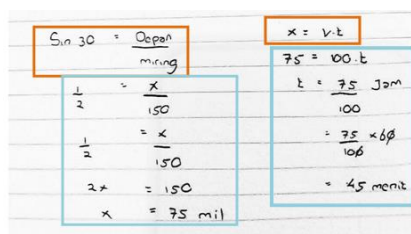 Sin 30 = Depan / miring
1/2 = x / 150
1/2 = x / 150
2x = 150
x = 75 mil
x = v.t
75 = 100.t
t = 75 / 100 Jam
= 75 / 100 x 60
= 45 menit